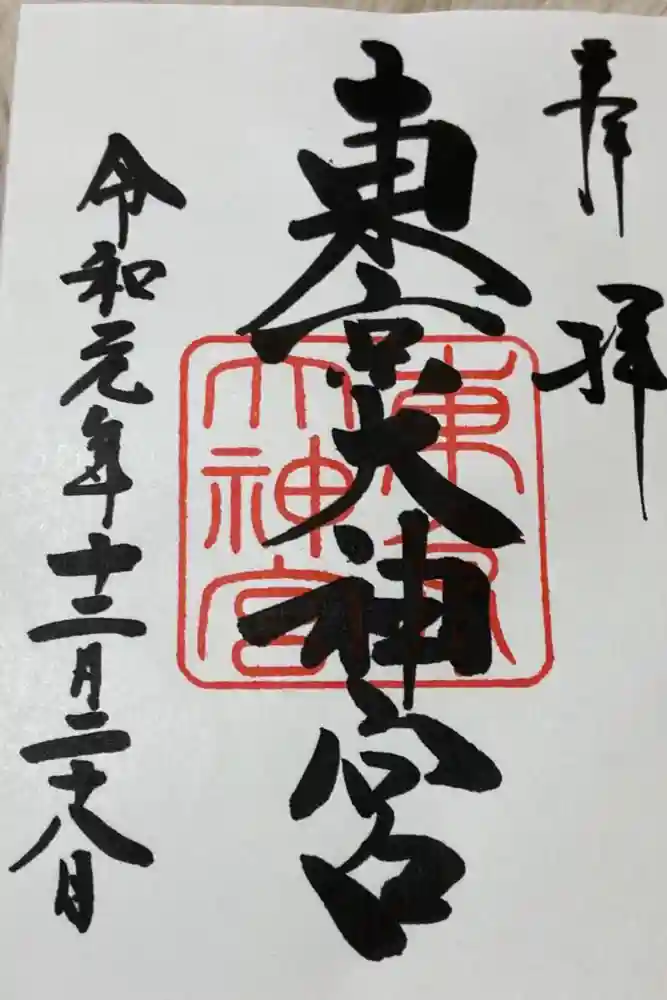 奉拝
東京大神宮
東京
大神宮
令和元年十二月二十八日